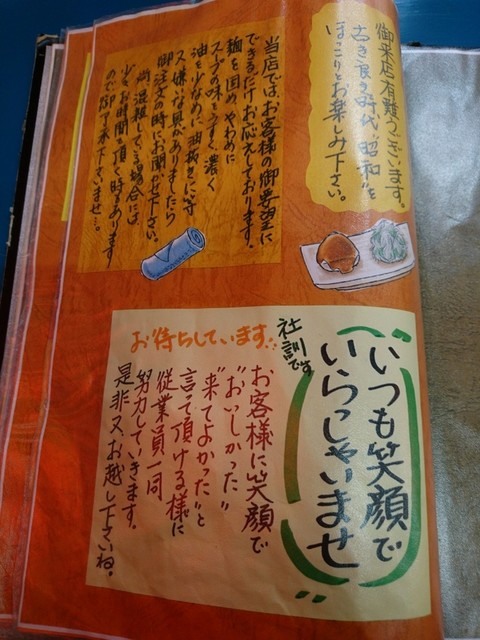 御来店有難うございます。
古き良き時代"昭和"を
ほっこりとお楽しみ下さい。
当店では、お客様の御要望に
できるだけお応えしております。
麺を固め、やわめに
スープの味をうすく、濃く
油を少なめに、油抜きに等
又、嫌いな具がありましたら
御注文の時にお聞かせ下さい。
尚、混雑している場合には、
少々お時間を頂く時もあります
ので、御了承下さいませ…。
いつも笑顔で
いらっしゃいませ
社訓です
お客様に笑顔で
"おいしかった"
"来てよかった"と
言って頂ける様に
従業員一同
努力していきます。
是非又お越し下さいね。
お待ちしています